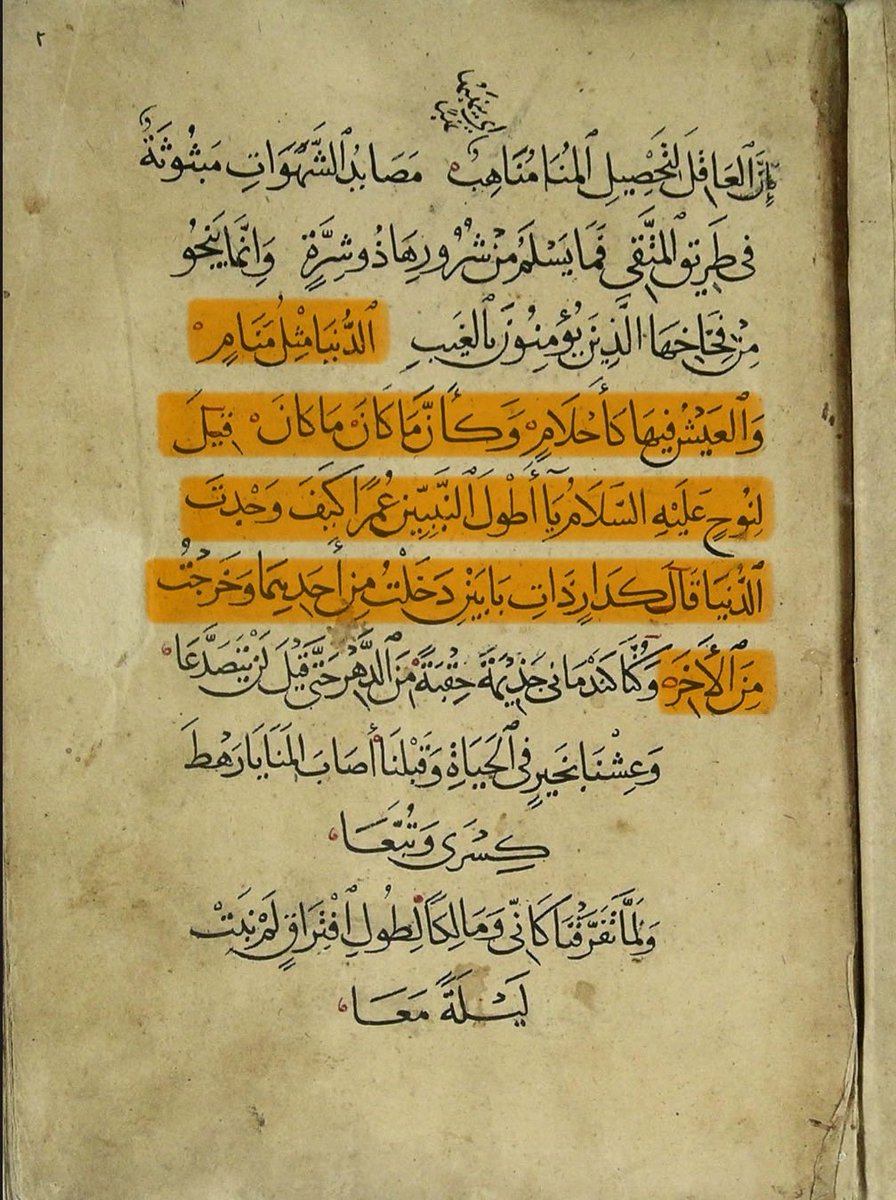 ٢
إِنَّ ٱلعَاقِلَ لتَحْصِيلِ ٱلمُنَا مُنَاهِبٌ مَصَايدُ ٱلشَّهَوَاتِ مَبثُوثَةٌ
فى طَرِيقِ ٱلمُتَّقِى فَمَا يَسْلَمُ مِنْ شُرُورِهَا ذُو شِرَّةٍ وَإِنَّمَا يَنْجُو
مِنْ فِخَاخِهَا ٱلَّذِينَ يُؤمِنُونَ بِٱلغَيبِ ٱلدُّنيَا مِثْلُ مَنَامٍ
وَٱلعَيْشُ فِيهَا كَأَحْلَامٍ وَكَأَنَّ مَا كَانَ مَا كَانَ قِيلَ
لِنُوحٍ عَلَيْهِ ٱلسَّلَامُ يَآ أَطْوَلَ ٱلنَّبِيِّينَ عُمرًا كَيفَ وَجْدتَ
ٱلدُّنيَا قَالَ كَدَارٍ ذَاتِ بَابَيْنِ دَخَلْتُ مِنْ أَحَدِهِمَا وَخَرَجْتُ
مِنَ ٱلأَخَرِ وَكُنَّا كَنَدْمَانَى جَذِيمَةَ حِقْبَةً مِنَ ٱلدَّهْرِ حَتَّى قِيْلَ لَنْ يَتَصَدَّعَا
وَعِشْنَا بِخَيرٍ فى ٱلحَيَاةِ وَقَبْلَنَا أَصَابَ ٱلمَنَايَا رَهْطَ
كِسْرَى وَتُبَّعَا
وَلَمَّا تَفَرَّقْنَا كَأَنِّى وَمَالِكًا لِطُولِ ٱفْتِرَاقٍ لَمْ نَبِتْ
لَيْلَةً مَعَا